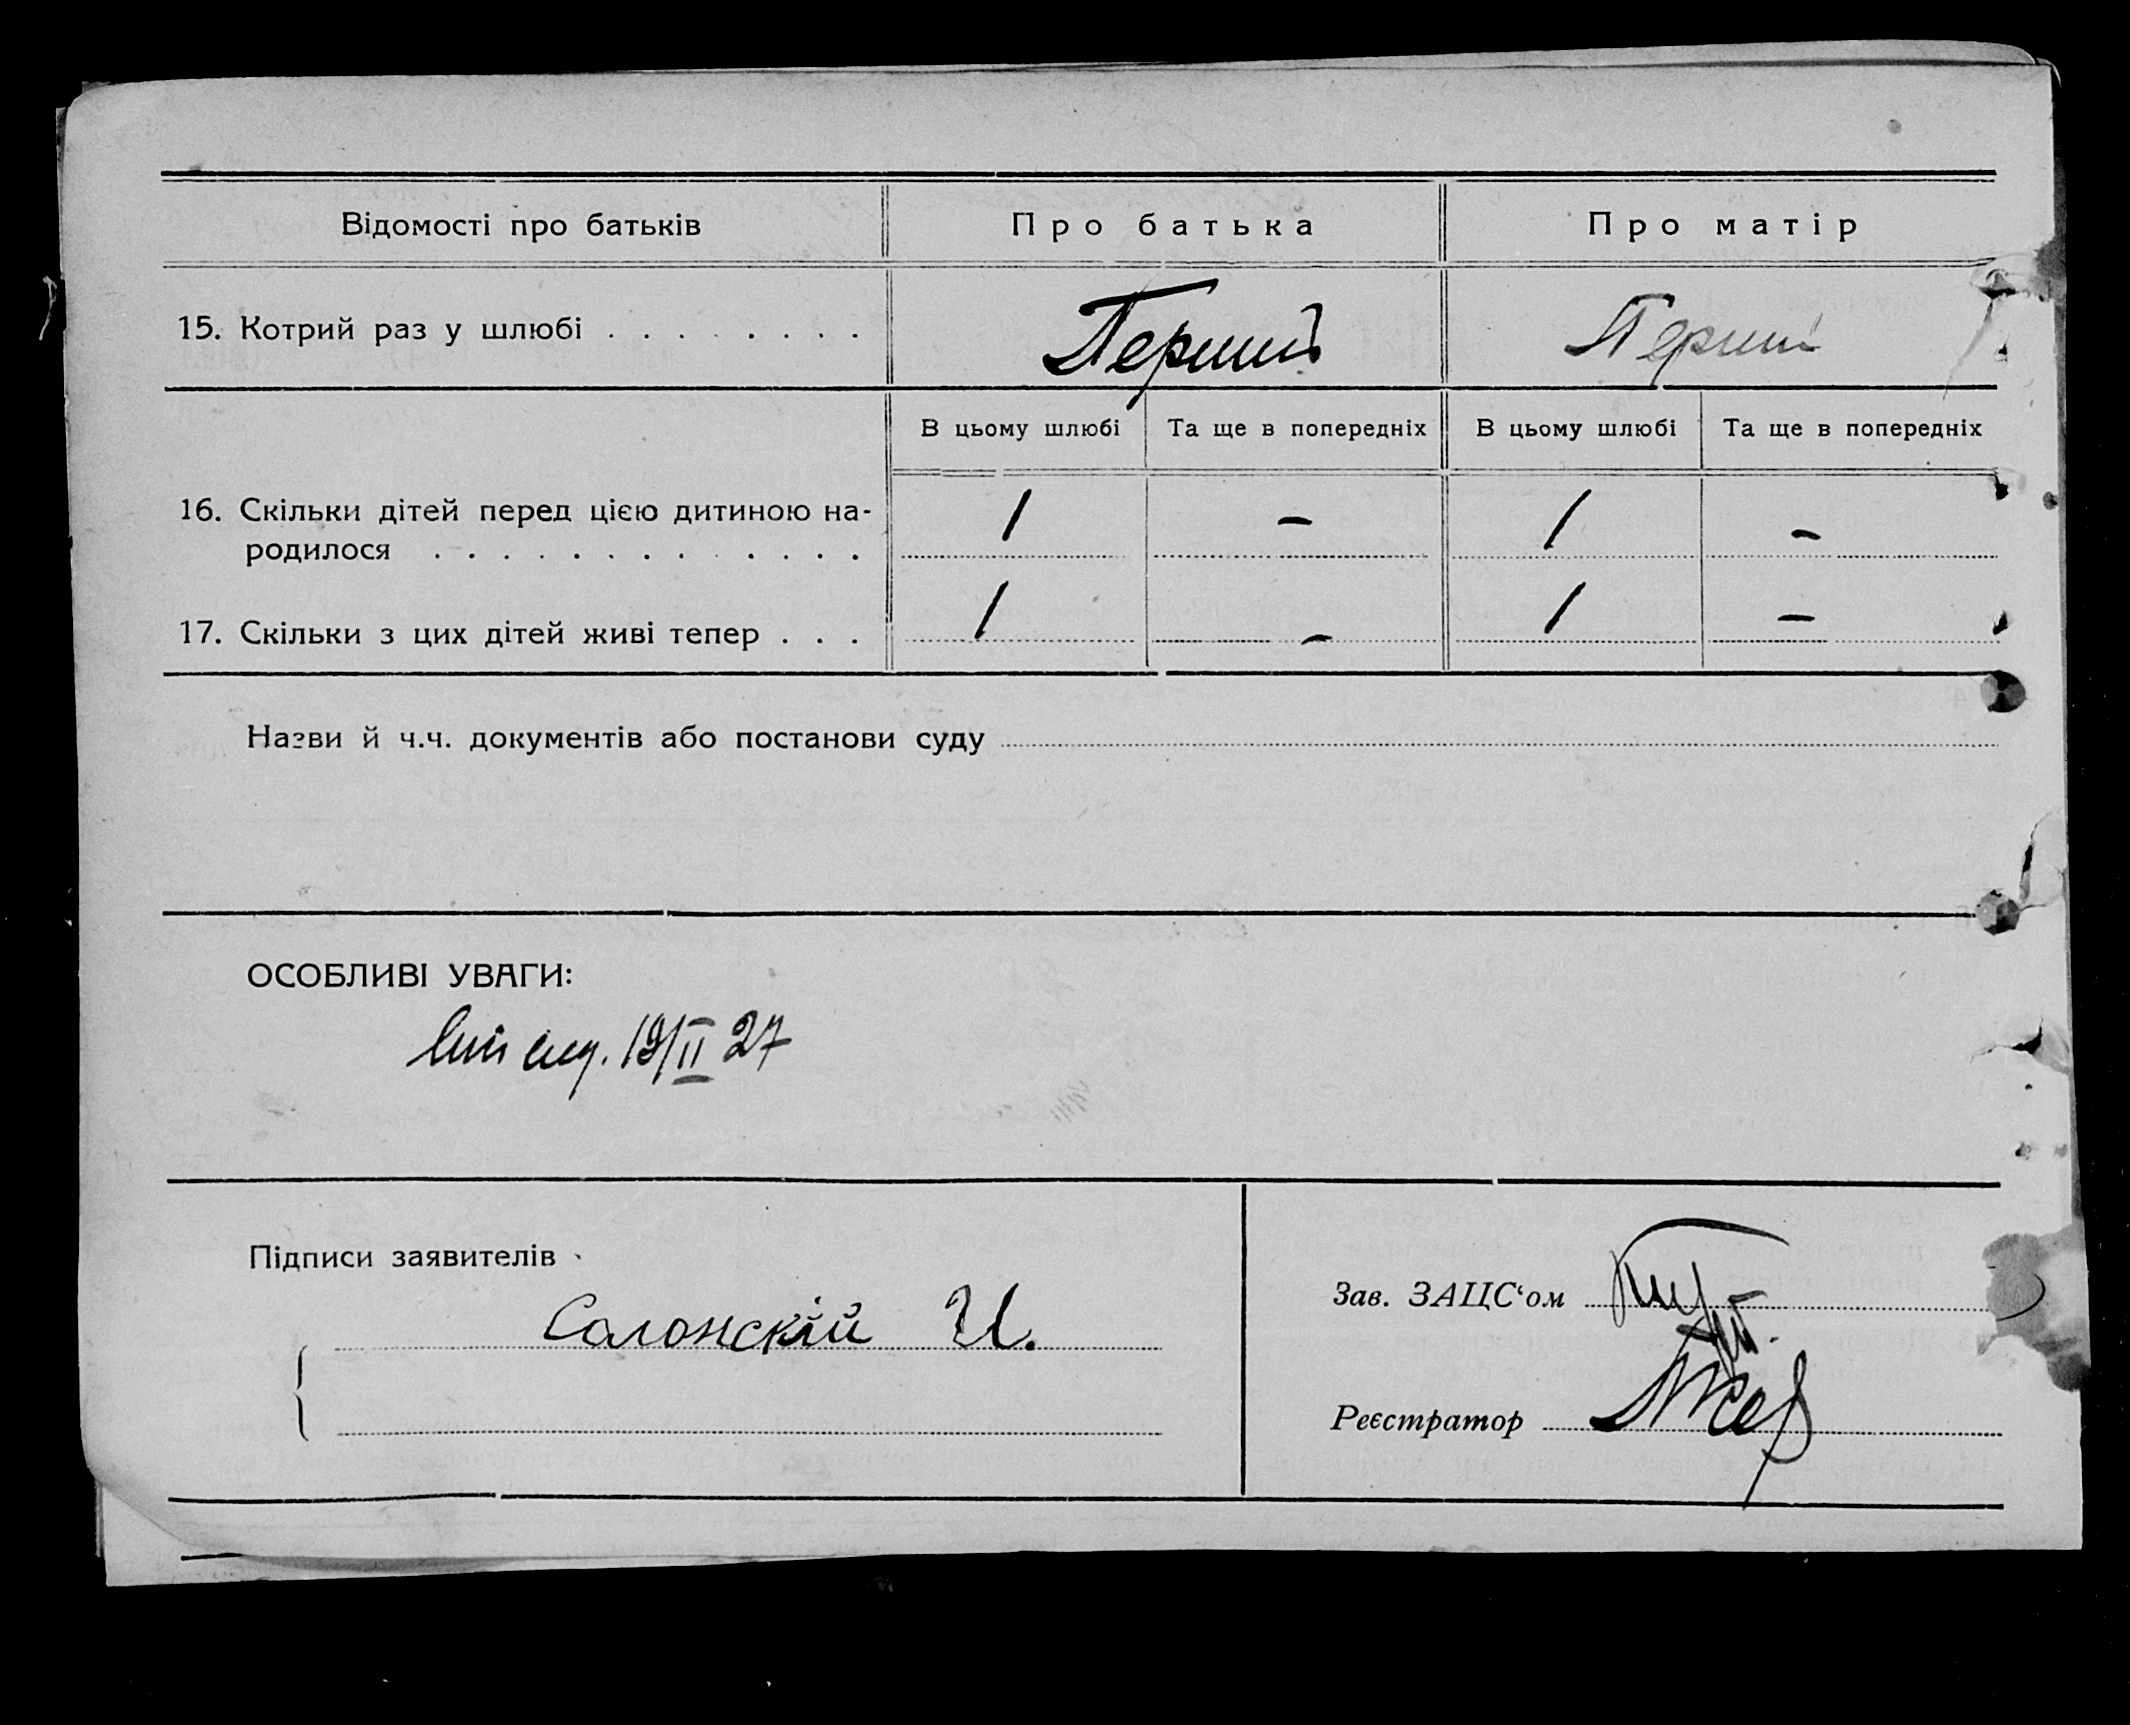 Відомості про батьків Про батька Про матір
15. Котрий раз у шлюбі . . . . . . . . Перший Перший
В цьому шлюбі Та ще в попередніх В цьому шлюбі Та ще в попередніх
16. Скільки дітей перед цією дитиною на-
родилося . . . . . . . . . . . . . 1 – 1 –
17. Скільки з цих дітей живі тепер . . . 1 – 1 –
Назви й ч.ч. документів або постанови суду
ОСОБЛИВІ УВАГИ:
19/II 27
Підписи заявителів
Зав. ЗАЦС‘ом
Солонскій И.
Реєстратор